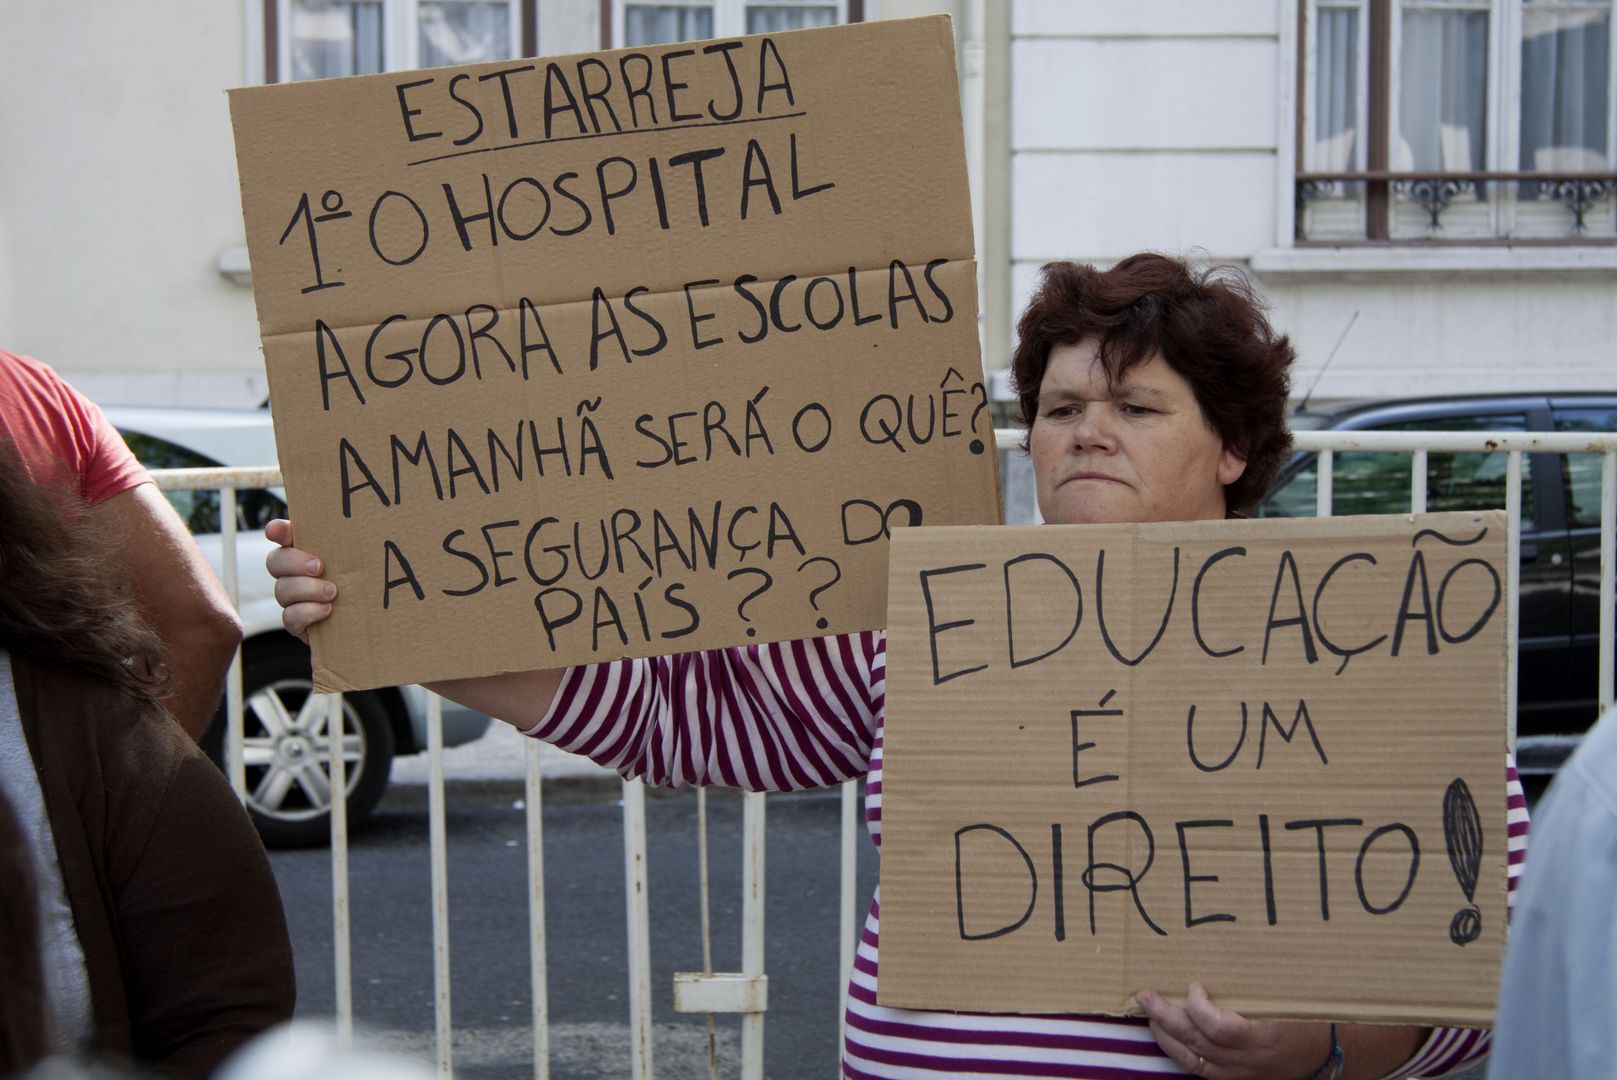 ESTARREJA
1º O HOSPITAL
AGORA AS ESCOLAS
AMANHÃ SERÁ O QUÊ?
A SEGURANÇA DO
PAÍS??
EDUCAÇÃO
É UM
DIREITO!